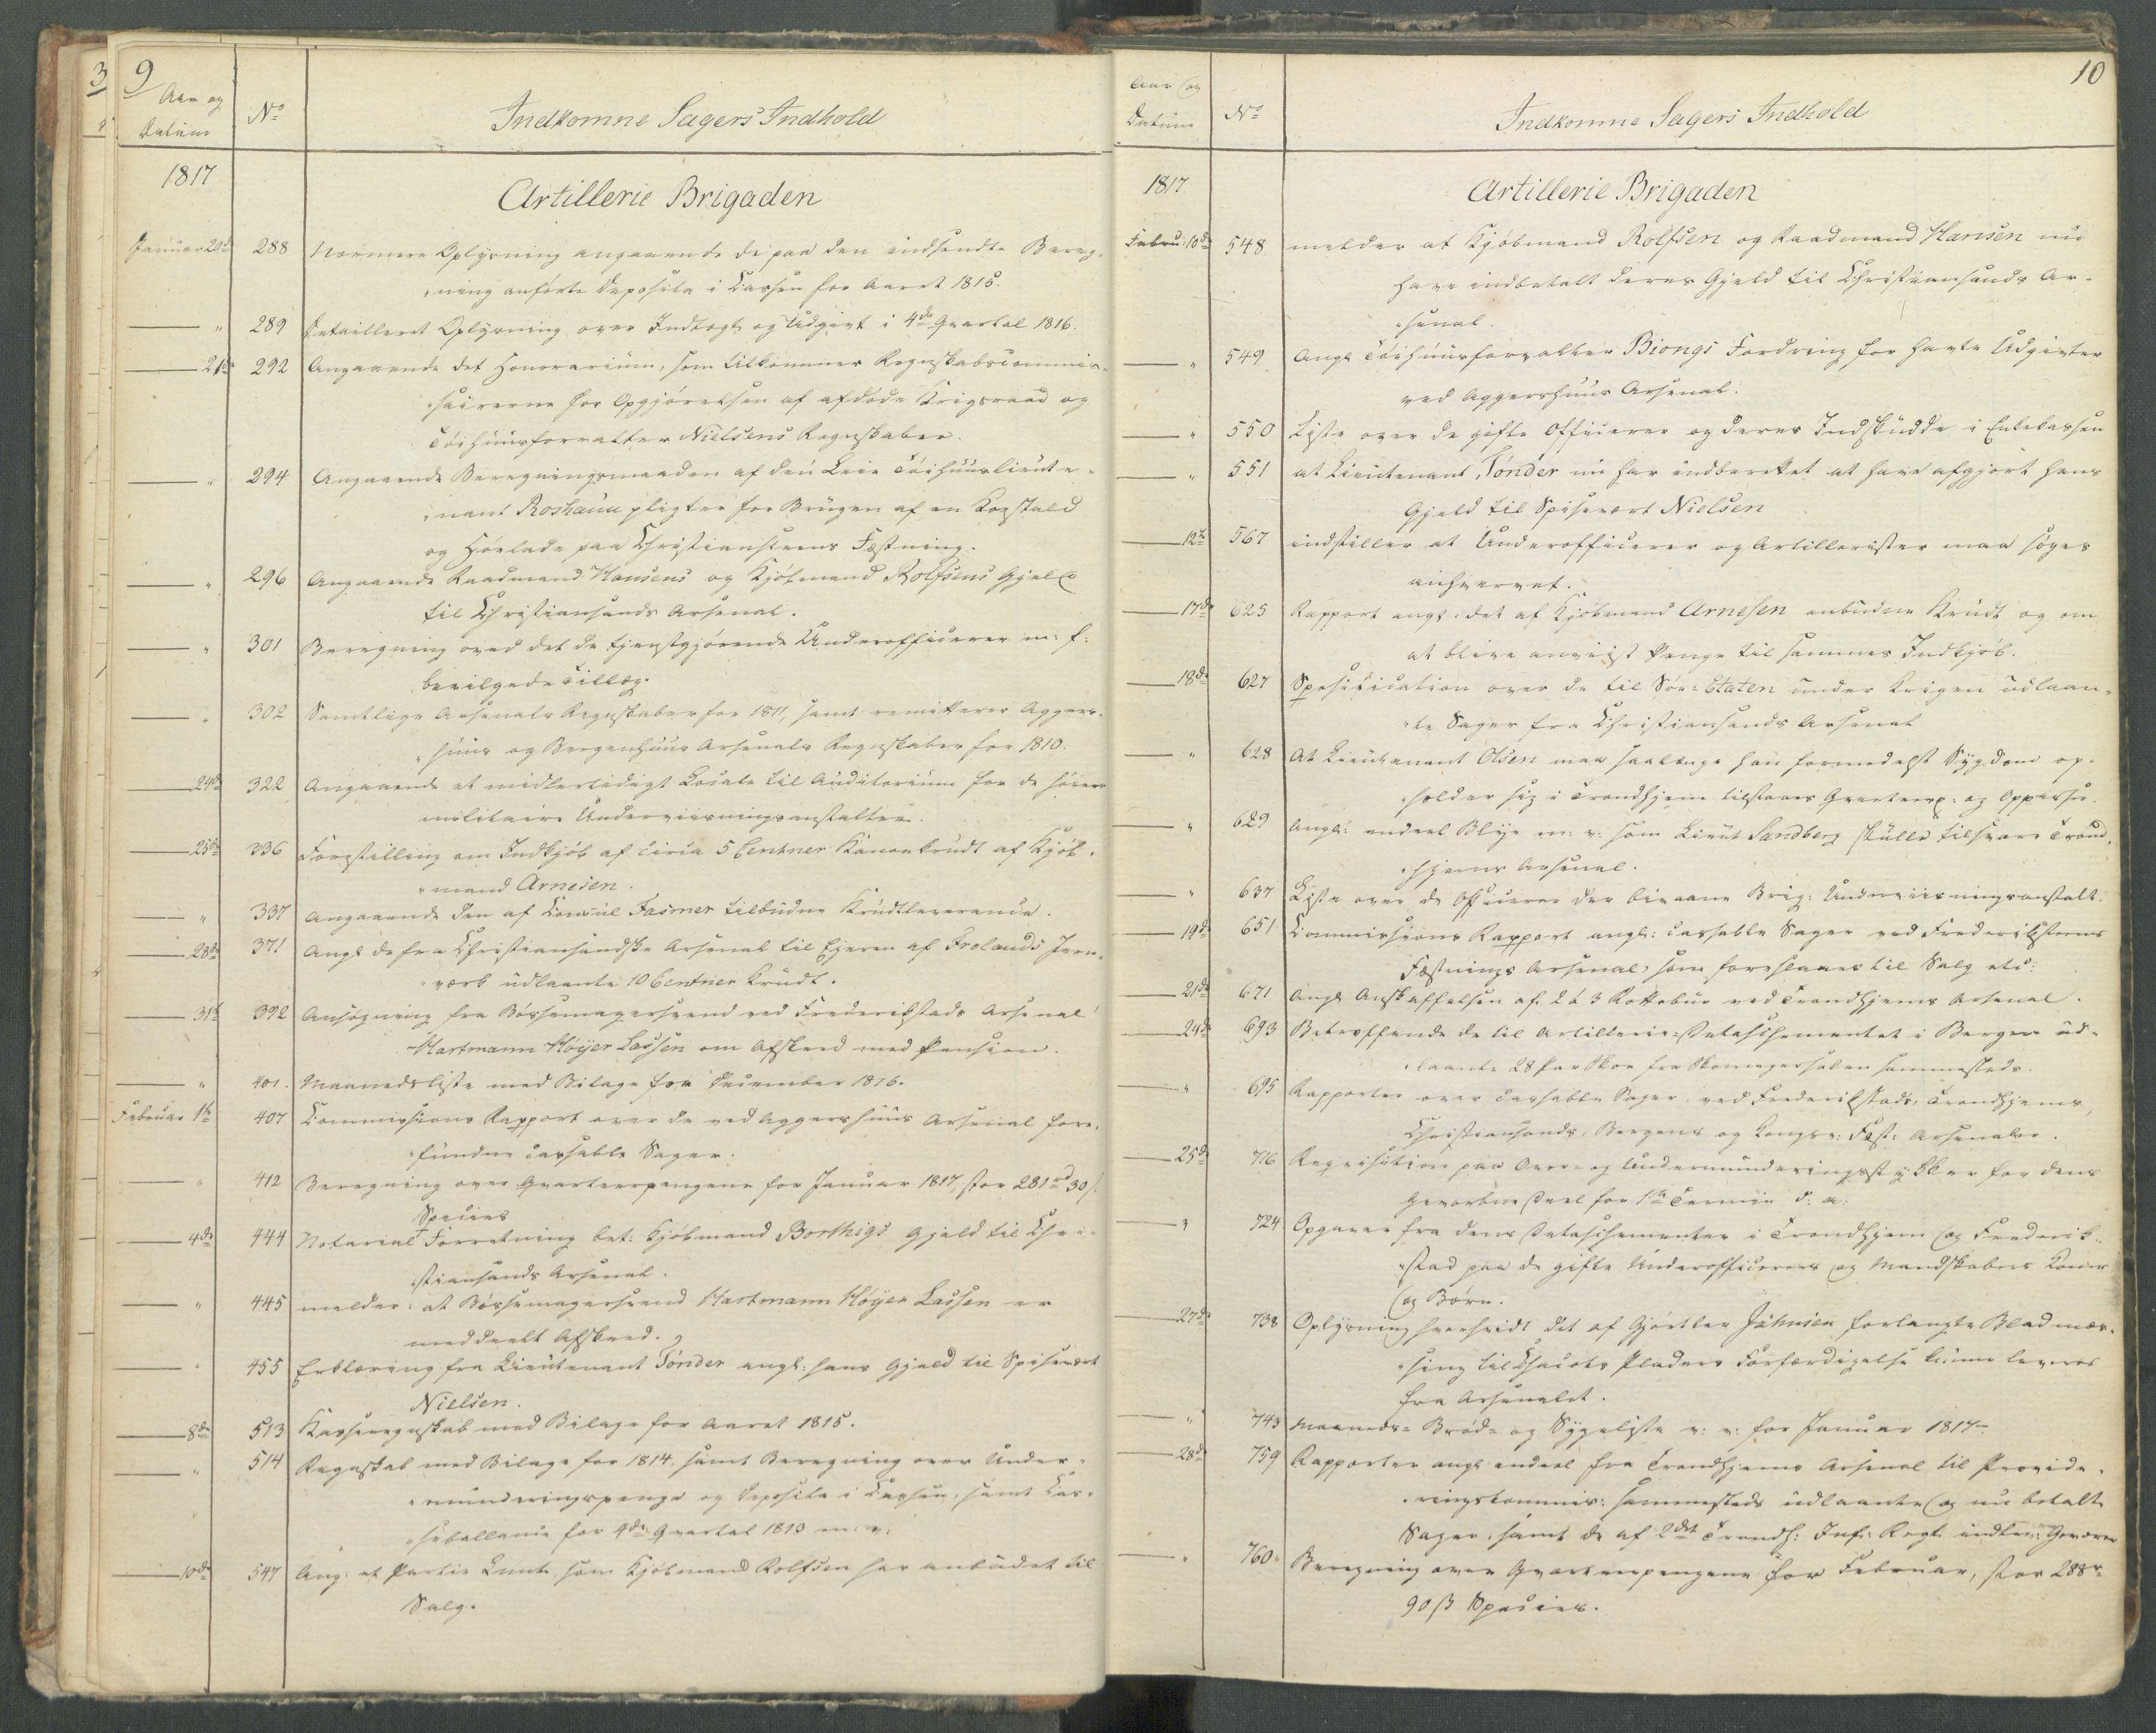 3
9
Aar og
Datum
No
Indkomne Sagers Indhold
1817
Artillerie Brigaden
Januar 20de 288 Nærmere Oplysning angaaende de paa den indsendte Bereg-
ning anførte Deposita i Cassen for Aaret 1815.
" 289 Detailleret Oplysning over Indtægt og Udgivt i 4de Qvartal 1816.
21de 292 Angaaende det Honorarium, som tilkommer Regnskabscommis-
sairerne for Opgjørelsen af afdøde Krigsraad og
Tøihuusforvalter Nielsens Regnskaber.
" 294 Angaaende Beregningsmaaden af den Leie Tøihuuslieute-
nant Roshauu pligter for Brugen af en Kostald
og Høelade paa Christiansteens Fæstning.
" 296 Angaaende Raadmand Hansens og Kjøbmand Rolfsens Gjeld
til Christiansands Arsenal.
" 301 Beregning over det de tjenstgjørende Underofficerer m: f:
bevilgede Tillæg.
" 302 Samtlige Arsenals Regnskaber for 1811, samt remitterer Aggers-
huus og Bergenhuus Arsenals Regnskaber for 1810.
24de 322 Angaaende et midlertidigt Locale til Auditorium for de høiere
militaire Underviisningsanstalter.
25de 336 Forestilling om Indkjøb af circa 5 Centner Kanonkrudt af Kjøb-
mand Arnesen.
" 337 Angaaende den af Consul Fasmer tilbudne Krudtleverance.
28de 371 Angl de fra Christiansandske Arsenal til Ejeren af Frolands Jern-
værk udlaante 10 Centner Krudt.
31te 392 Ansøgning fra Bøssemagersvend ved Frederikstads Arsenal
Hartmann Høyer Lassen om Afskeed med Pension.
" 401. Maanedsliste med Bilage for December 1816.
Februar 1te 407 Commissions Rapport over de ved Aggershuus Arsenal fore-
fundne cassable Sager.
" 412 Beregning over Qvarteerpengene for Januar 1817, stor 281rd 30 s.
Species
4de 444 Notarial Forretning bet: Kjøbmand Borthigs Gjeld til Chri-
stiansands Arsenal.
" 445 melder: at Bøssemagersvend Hartmann Høyer Lassen er
meddeelt Afskeed.
" 455 Erklæring fra Lieutenant Tønder angl: hans Gjeld til Spisevært
Nielsen.
8de 513 Kasseregnskab med Bilage for Aaret 1815.
" 514 Regnskab med Bilage for 1814, samt Beregning over Under-
munderingspenge og Deposita i Cassen, samt Cas-
seballance for 4de Qvartal 1813 m: v:
10de 547 Ang: et Partie Lunte som Kjøbmand Rolfsen har anbudet til
Salg.
10
Aar og
Datum
No
Indkomne Sagers Indhold
1817.
Artillerie Brigaden
Febru: 10de 548 melder at Kjøbmand Rolfsen og Raadmand Hansen nu
have indbetalt deres Gjeld til Christiansands Ar-
senal.
" 549 Angl Tøihuusforvalter Biongs Fordring for havte Udgivter
ved Aggershuus Arsenal.
" 550 Liste over de gifte Officerer og deres Indskudde i Enkekassen
" 551 at Lieutenant Tønder nu har indberettet at have afgjort hans
Gjeld til Spisevært Nielsen
12te 567 indstiller at Underofficerer og Artillerister maa søges
anhvervet.
17de 625 Rapport angl: det af Kjøbmand Arnesen anbudne Krudt og om
at blive anviist Penge til sammes Indkjøb.
18de 627 Spesification over de til Søe-Etaten under Krigen udlaan-
te Sager fra Christiansands Arsenal
" 628 At Lieutenant Olsen maa saalænge han formedelst Sygdom op-
holder sig i Trondhjem tilstaaes Qvarteerp: og Oppassn:
" 629 Angl: endeel Blye m: v: som Lieut Sandberg skulle tilsvare Trond-
hjems Arsenal.
" 637 Liste over de Officerer der bivaane Brig: Underviisningsanstalt.
19de 651 Commissions Rapport angl: cassable Sager ved Frederiksteens
Fæstnings Arsenal, som foreslaaes til Salg etc:
21de 671 Angl Anskaffelsen af 2 à 3 Kakkelovne ved Trondhjems Arsenal.
24de 693 Betreffende de til Artillerie-Detaschementet i Bergen ud-
laante 28 Par Skoe fra Skomagersalen sammesteds.
" 695 Rapporter over cassable Sager, ved Frederikstads, Trondhjems,
Christiansands, Bergens og Kongsv: Fæst: Arsenaler.
25de 716 Reqvisition paa Over- og Undermunderingsstykker for dens
Gevorbne Deel for 1te Termin d: A:
" 724 Opgaver fra dens Detaschementer i Trondhjem og Frederik-
stad paa de gifte Underofficerers og Mandskabers Koner
og Børn.
27de 738 Oplysning hvorvidt det af Gjørtler Jahnsen forlangte Bladmes-
sing til Chacots Pladers Forfærdigelse kunne leveres
fra Arsenalet.
" 743 Maaneds- Brød- og Sygeliste v: v: for Januar 1817
28de 759 Rapporter angl endeel fra Trondhjems Arsenal til Provide-
ringskommis: sammesteds udlaante og nu betalte
Sager, samt de af 2det Trondh: Inf: Regt indlev: Geværer
" 760. Beregning over Qvarteerpengene for Februar, stor 288rd
90 ß Species.